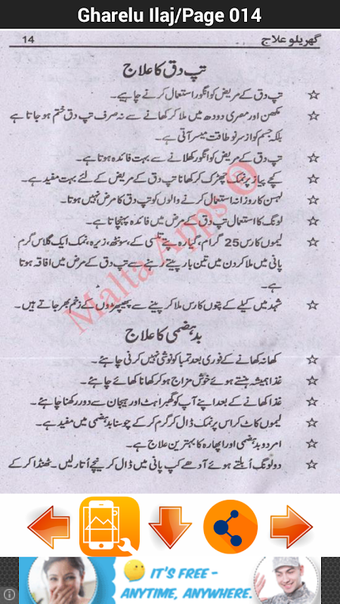 Gharelu Ilaj/Page 014
گھریلو علاج
14
تپ دق کا علاج
☆ تپ دق کے مریض کو انگور استعمال کرنے چاہیے۔
☆ مکھن اور مصری دودھ میں ملا کر کھانے سے نہ صرف تپ دق ختم ہو جاتا ہے
بلکہ جسم کو از سر نو طاقت میسر آتی ہے۔
☆ تپ دق کے مریض کو انگور کھلانے سے بہت فائدہ ہوتا ہے۔
☆ کچے پیاز پر نمک چھڑک کر کھانا تپ دق کے مریض کے لئے بہت مفید ہے۔
☆ لہسن کا روزانہ استعمال کرنے والوں کو تپ دق کا مرض نہیں ہوتا۔
☆ لونگ کا استعمال تپ دق کے مرض میں فائدہ پہنچاتا ہے۔
☆ لیموں کا رس 25 گرام، گیارہ پتے تلسی کے، سونٹھ، زیرہ، نمک ایک گلاس گرم
پانی میں ملا کر دن میں تین بار پیتے رہنے سے تپ دق کے مرض میں افاقہ ہوتا
ہے۔
☆ شہد میں کیلے کے پتوں کا رس ملا کر پینے سے پھیپھڑوں کے زخم بھر جاتے ہیں۔
Malta Apps
بد ہضمی کا علاج
☆ کھانہ کھانے کے فوری بعد تمباکو نوشی نہیں کرنی چاہئے۔
☆ غذا ہمیشہ ہنستے ہوئے خوش مزاج ہو کر کھانا کھائے چاہئے۔
☆ غذا کھانے کے بعد اپنے آپ کو گھبراہٹ اور ہیجان سے دور رکھنا چاہئے۔
☆ لیموں کاٹ کر اس پر نمک ڈال کر گرم کر کے چوسنا بد ہضمی میں مفید ہے۔
☆ امرود بد ہضمی اور اپھارہ کا بہترین علاج ہے۔
☆ دو لونگ اُبلتے ہوئے آدھے کپ پانی میں ڈال کر نیچے اُتار لیں۔ ٹھنڈا کر کے
IT'S FREE -
ANYTIME, ANYWHERE.